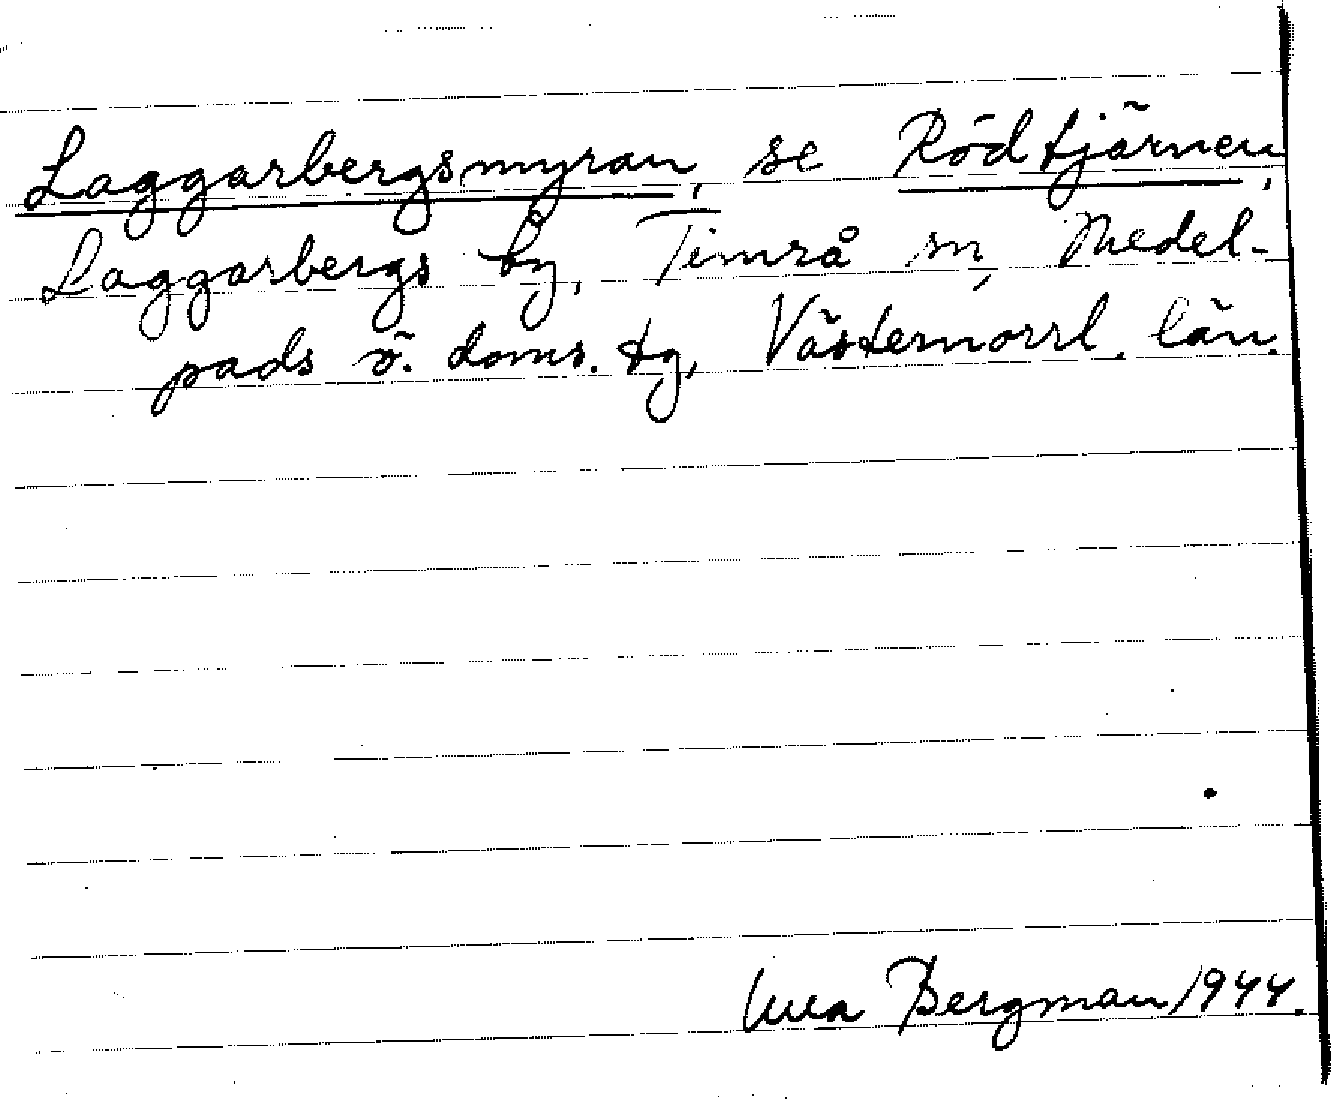 Laggarbergsmyran, se Rödtjärnen,
Laggarbergs by, Timrå sn, Medel-
pads ö. doms. tg, Västernorrl. län.
Bergman 1944.